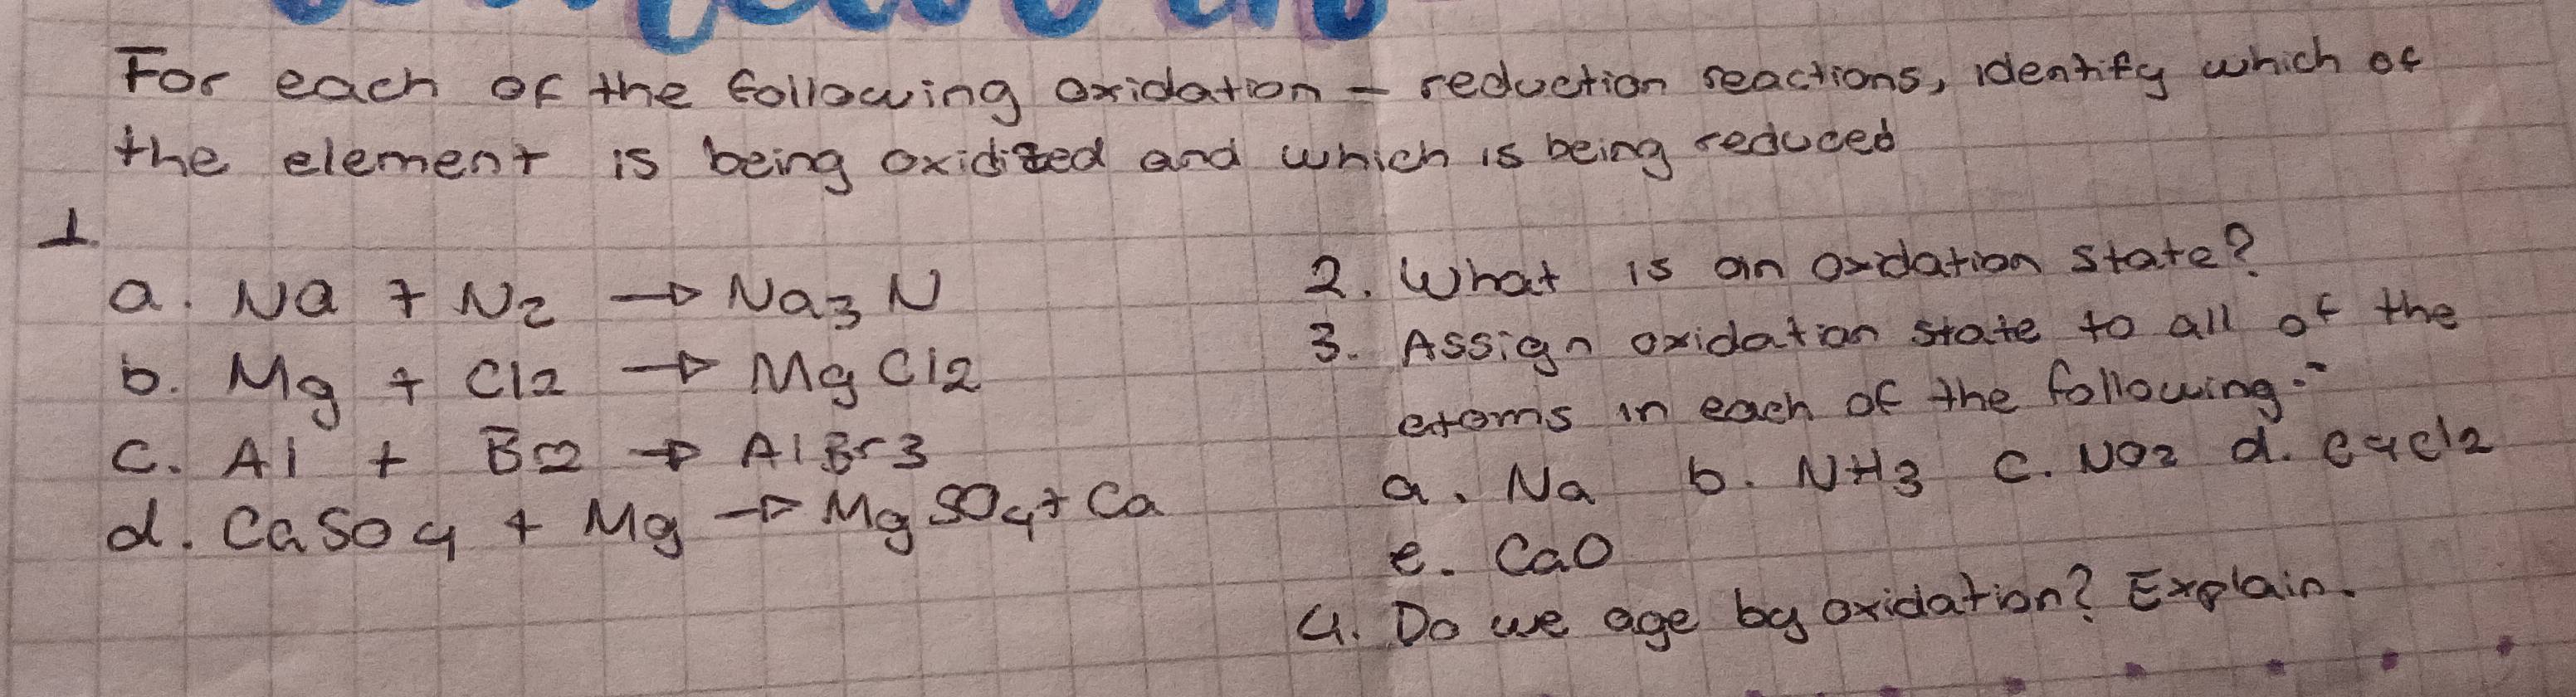 For each of the following oxidation - reduction reactions, identify which of
the element is being oxidized and which is being reduced
1
a. Na + N2 → Na3N
b. Mg + Cl2 → MgCl2
c. Al + Br2 → AlBr3
d. CaSO4 + Mg → MgSO4 + Ca
2. What is an oxidation state?
3. Assign oxidation state to all of the
atoms in each of the following:-
a. Na b. NH3 c. NO2 d.
e. CaO
4. Do we age by oxidation? Explain.